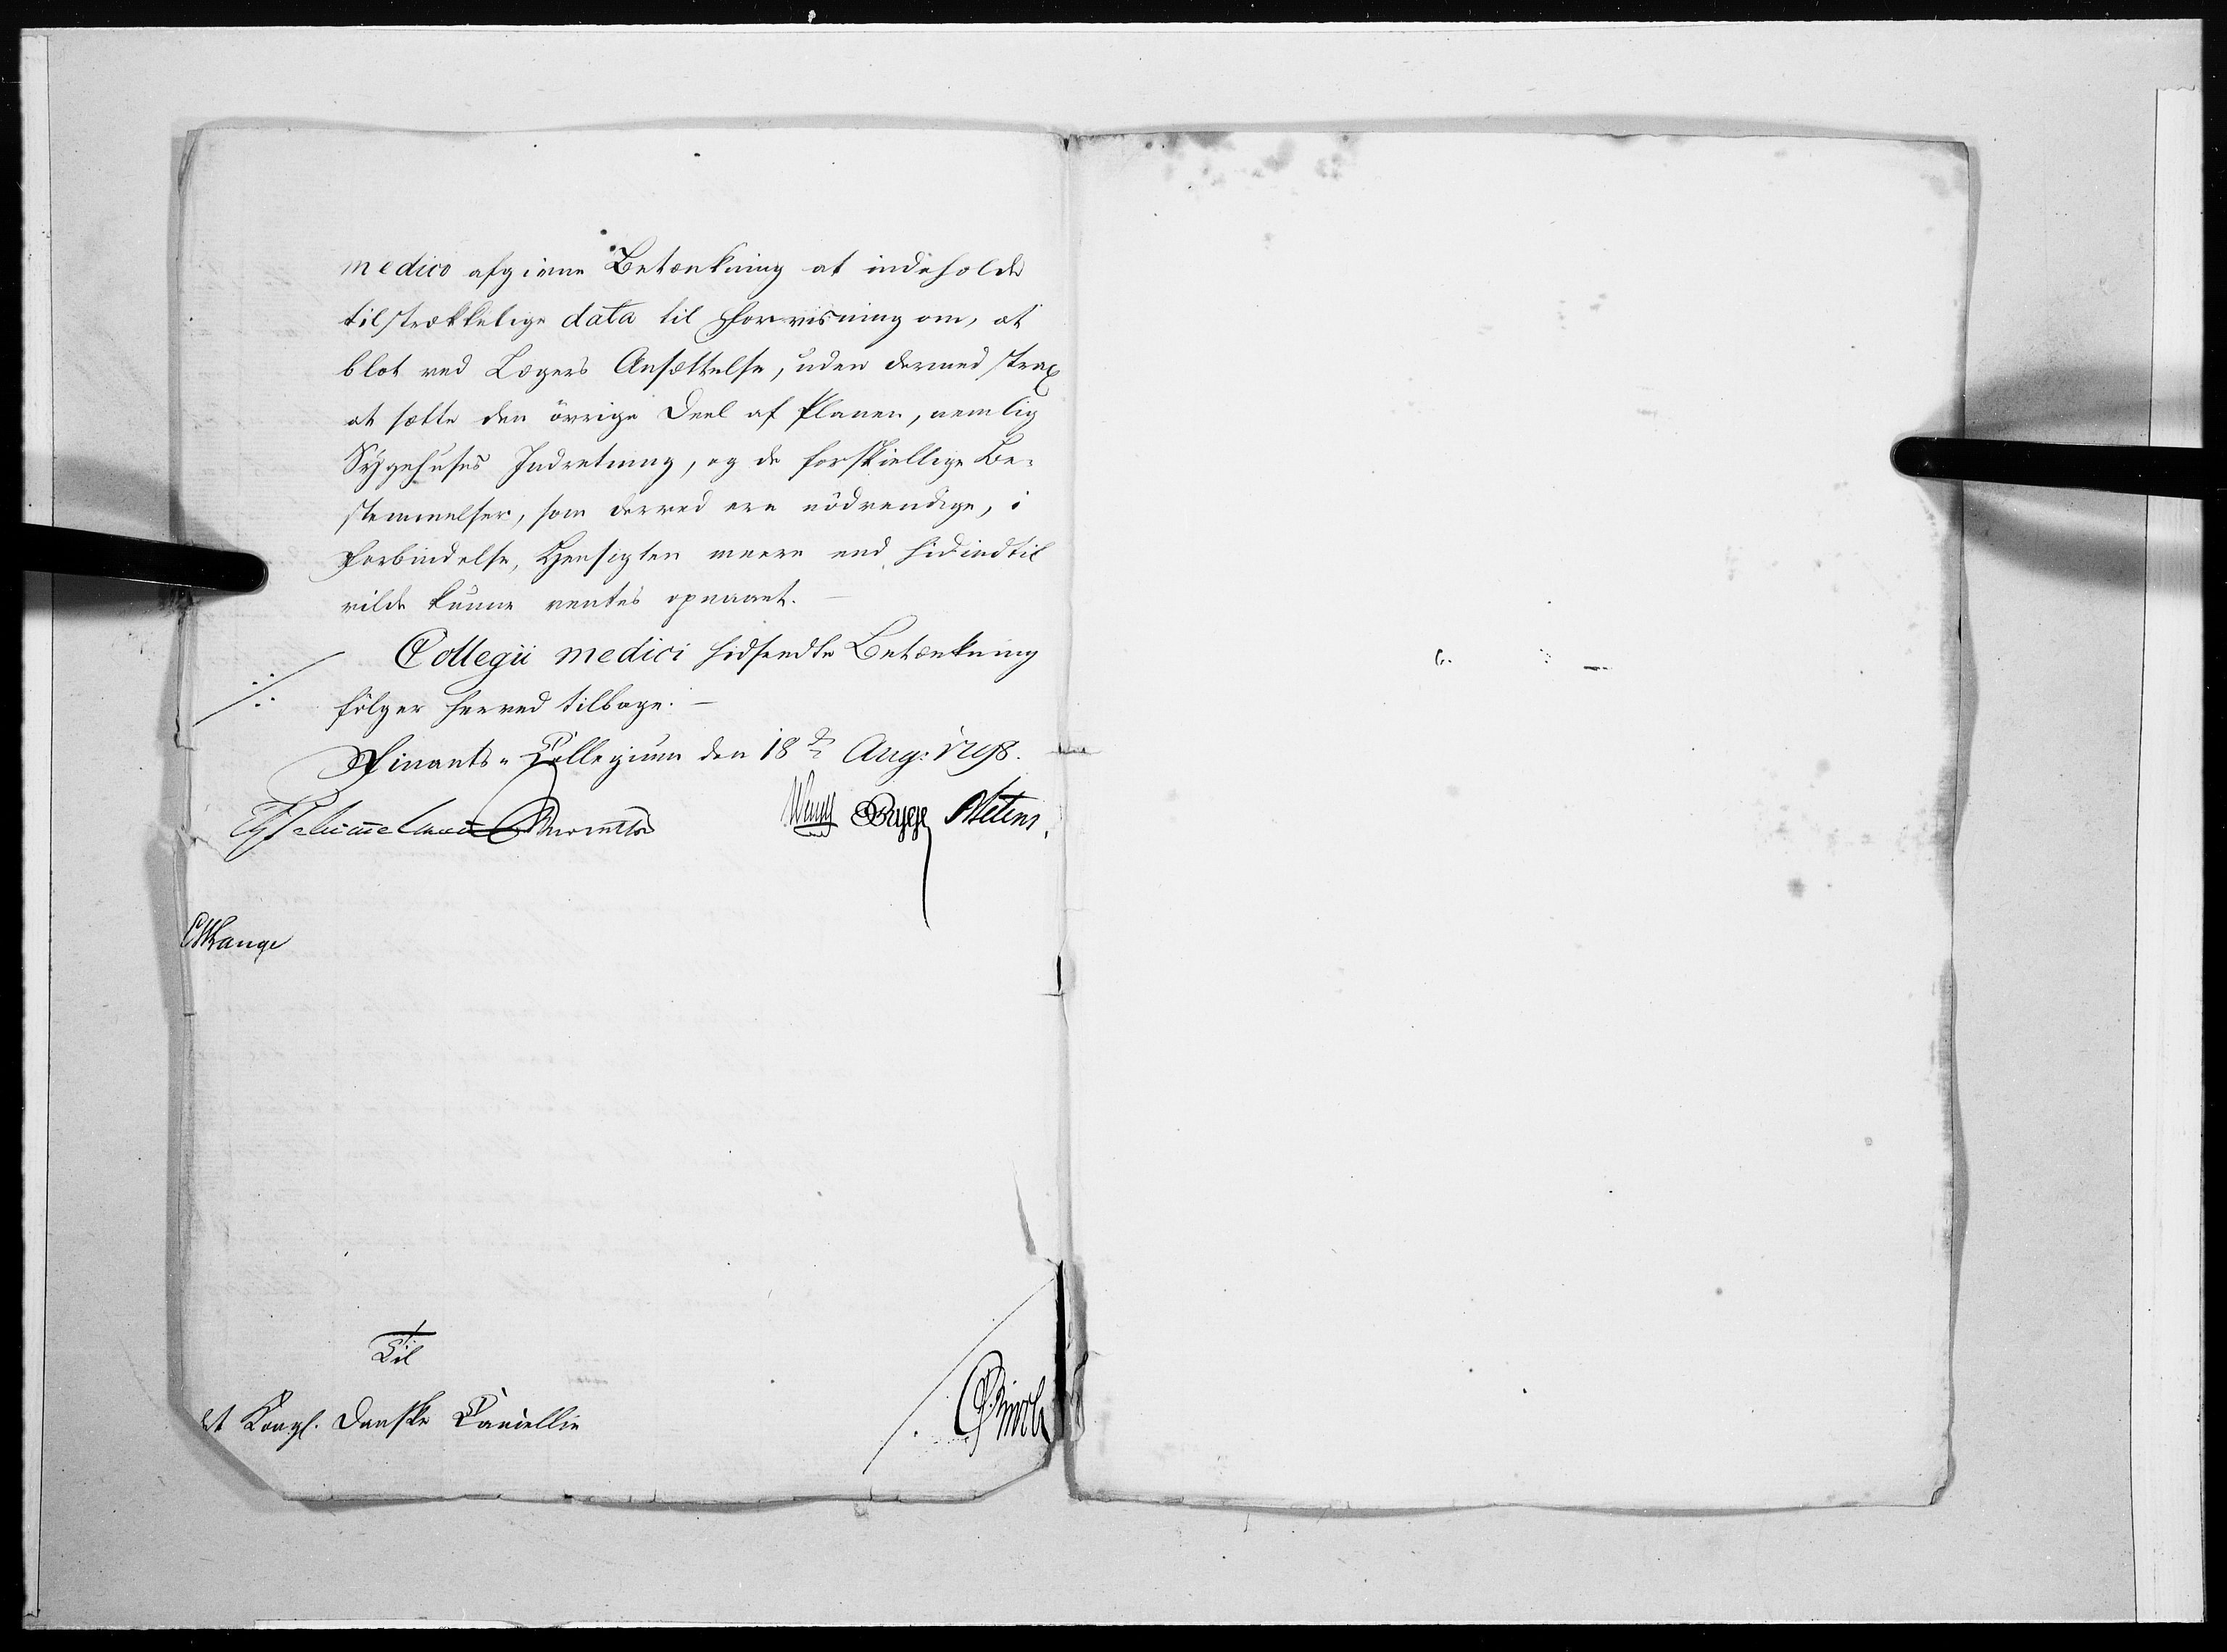 medico afgivne Betænkning at indeholde
tilstrækkelige data til Forvisning om, at
blot ved Lægers Ansættelse, uden dermed strax
at sætte den övrige Deel af Planen, nemlig
Sygehuses Indretning, og de forskiellige Be-
stemmelser, som derved ere nödvendige, i
Forbindelse, Hensigten meere end hidindtil
vilde kunne ventes opnaaet. —
Collegii medici hidsendte Betænkning
fölger herved tilbage. —
Finants-Collegium den 18de Aug: 1798.
Schimmelmann Wendt Brygge
C Lange
Til
Det Kongl. Danske Cancellie